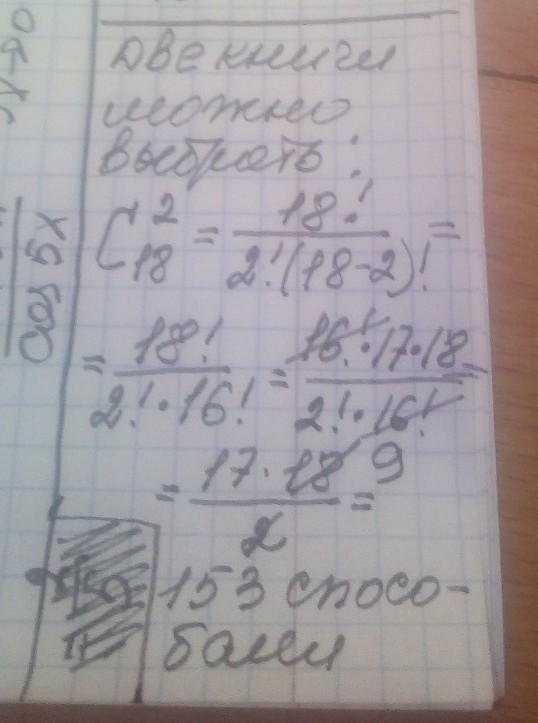 две книги
можно
выбрать:
C₁₈² = 18! / 2!(18-2)! =
= 18! / 2!·16! = 16!·17·18 / 2!·16! =
= 17·18 9 / 2 =
153 спосо-
бами
cos 5x